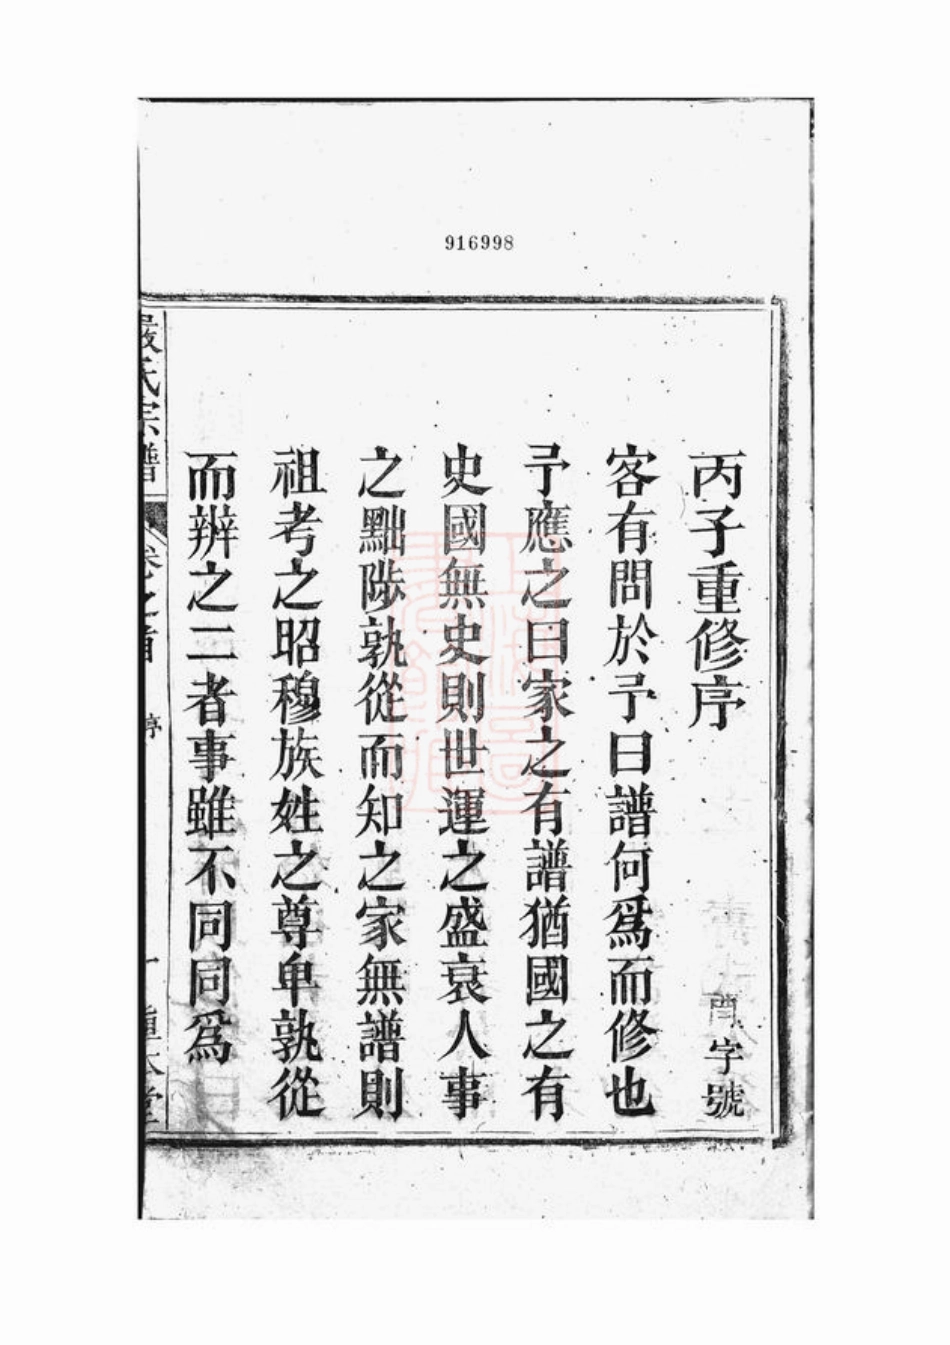 916998
丙子重修序
字號
客有問於予曰譜何爲而修也
予應之曰家之有譜猶國之有
史國無史則世運之盛衰人事
之黜陟孰從而知之家無譜則
祖考之昭穆族姓之尊卑孰從
而辨之二者事雖不同同爲
嚴氏宗譜
卷之首
序
一